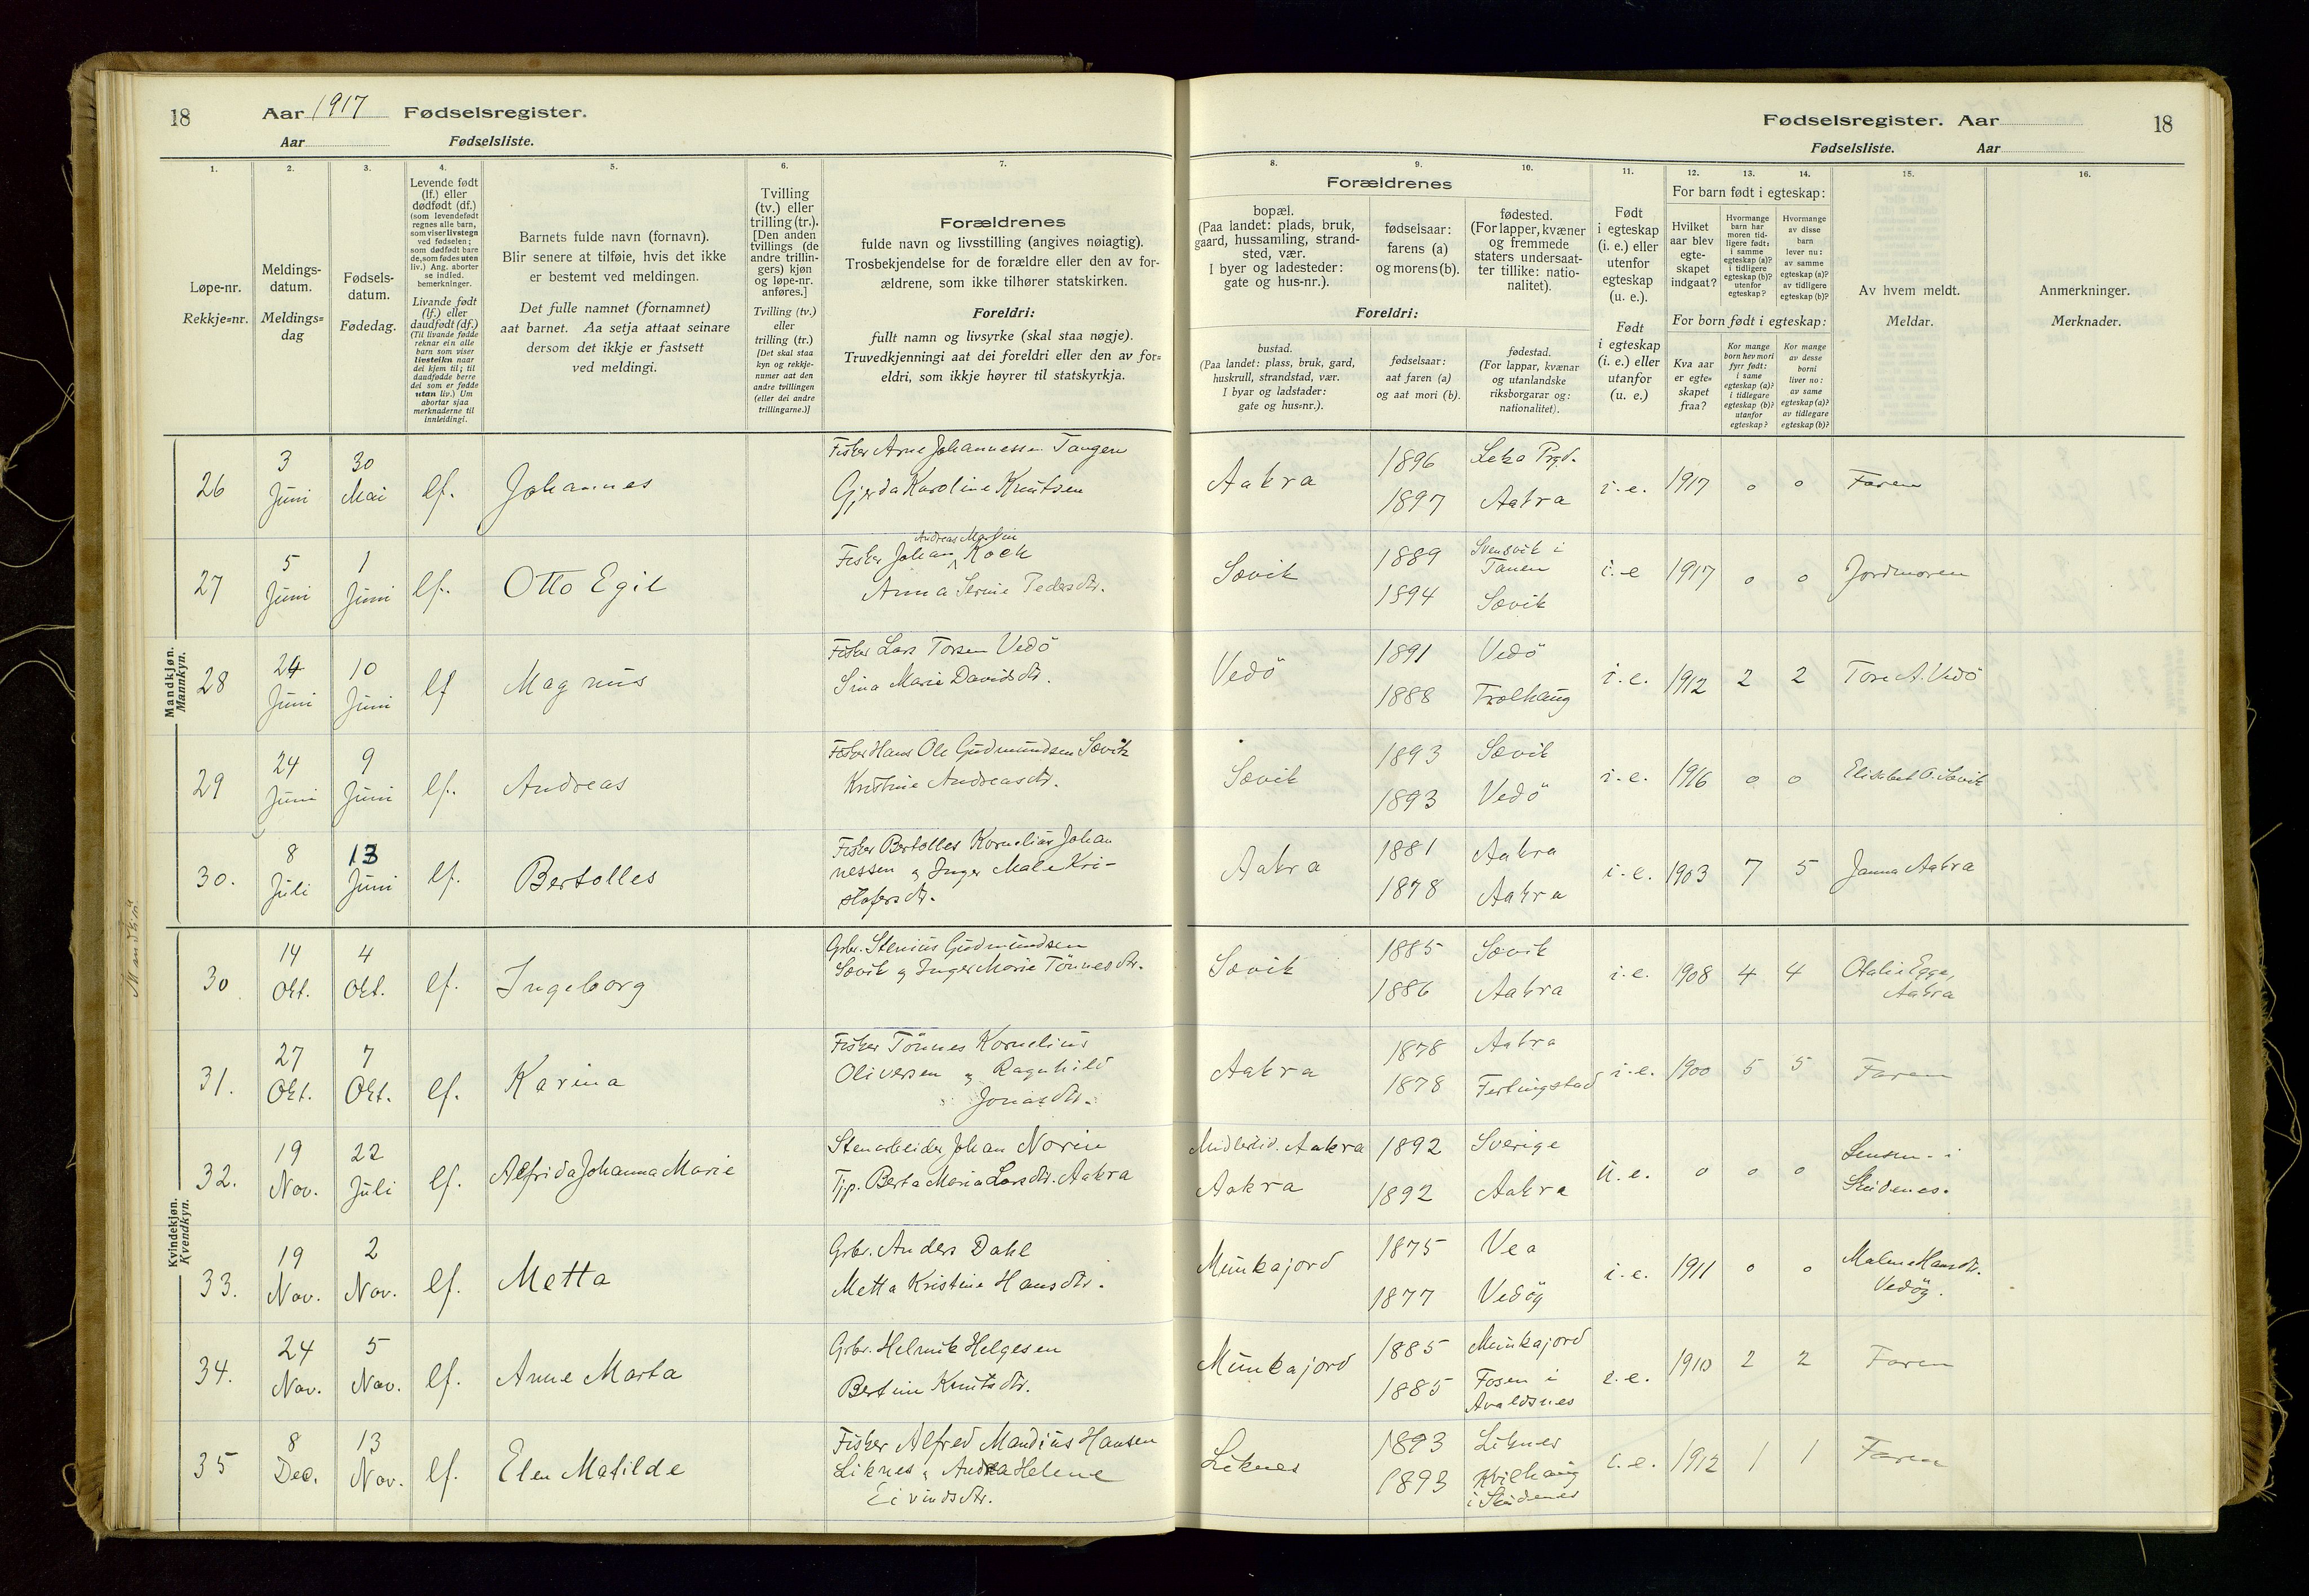 18
Aar 1917 Fødselsregister.
Aar Fødselsliste.
Fødselsregister. Aar
18
Fødselsliste. Aar
1. 2. 3. 4. 5. 6. 7.
Løpe-nr.
Rekkje=nr.
Meldings-
datum.
Meldings=
dag
Fødsels-
datum.
Fødedag.
Levende født
(lf.) eller
dødfødt (df.)
(som levendefødt
regnes alle barn,
som viser livstegn
ved fødselen;
som dødfødt bare
de, som fødes uten
liv.) Ang. aborter
se indled.
bemerkninger.
Livande født
(lf.) eller
daudfødt (df.)
(Til livande fødde
reknar ein alle
barn som viser
livsteikn naar
dei kjem til; til
daudfødde berre
dei som er fødde
utan liv.) Um
abortar sjaa
merknaderne til
innleidingi.
Barnets fulde navn (fornavn).
Blir senere at tilføie, hvis det ikke
er bestemt ved meldingen.
Det fulle namnet (fornamnet)
aat barnet. Aa setja attaat seinare
dersom det ikkje er fastsett
ved meldingi.
Tvilling
(tv.) eller
trilling (tr.).
[Den anden
tvillings (de
andre trillin-
gers) kjøn
og løpe-nr.
anføres.]
Tvilling (tv.)
eller
trilling (tr.)
[Det skal staa
kyn og rekkje-
numer aat den
andre tvillingen
(eller dei andre
trillingarne.)]
Forældrenes
fulde navn og livsstilling (angives nøiagtig).
Trosbekjendelse for de forældre eller den av for-
ældrene, som ikke tilhører statskirken.
Foreldri:
fullt namn og livsyrke (skal staa nøgje).
Truvedkjenningi aat dei foreldri eller den av for=
eldri, som ikkje høyrer til statskyrkja.
8. 9. 10. 11. 12. 13. 14. 15. 16.
Forældrenes
bopæl.
(Paa landet: plads, bruk,
gaard, hussamling, strand-
sted, vær.
I byer og ladesteder:
gate og hus-nr.).
fødselsaar:
farens (a)
og morens (b).
fødested.
(For lapper, kvæner
og fremmede
staters undersaat-
ter tillike: natio-
nalitet).
Foreldri:
bustad.
(Paa landet: plass, bruk, gard,
huskrull, strandstad, vær.
I byar og ladstader:
gate og hus=nr.).
fødselsaar:
aat faren (a)
og aat mori (b).
fødestad.
(For lappar, kvænar
og utanlandske
riksborgarar og:
nationalitet).
Født
i egteskap
(i. e.) eller
utenfor
egteskap
(u. e.).
Født
i egteskap
(i. e.) eller
utanfor
(u. e.)
For barn født i egteskap:
Hvilket
aar blev
egte-
skapet
indgaat?
Hvormange
barn har
moren tid-
ligere født:
i samme
egteskap (a)?
i tidligere
egteskap (b)?
utenfor
egteskap?
Hvormange
av disse
barn
lever nu:
av samme
egteskap (a)?
av tidligere
egteskap (b)?
For born født i egteskap:
Kva aar
er egte=
skapet
fraa?
Kor mange
born hev mori
fyrr født:
i same
egteskap (a)?
i tidlegare
egteskap (b)?
utanfor
egteskap?
Kor mange
av desse
borni
liver no:
av same
egteskap (a)?
av tidlegare
egteskap (b)?
Av hvem meldt.
Meldar.
Anmerkninger.
Merknader.
Mandkjøn.
Mannkyn.
26 3 Juni 30 Mai lf. Johannes
Fisker Arne Johannessen Tangen
Gjerda Karoline Knutsen
Aakra 1896 Leka Prgd.
1897 Aakra
i. e. 1917 0 0 Faren
27 5 Juni 1 Juni lf. Otto Egil
Andreas Martin
Fisker Johan Koch
Anna Serine Pedersdtr.
Sævik 1889 Svensvik i
Tanen
1894 Sævik
i. e 1917 0 0 Jordmoren
28 24 Juni 10 Juni lf Magnus
Fisker Lars Torsen Vedö
Sina Marie Davidsdtr.
Vedö 1891 Vedö
1888 Trolhaug
i. e. 1912 2 2 Tore A. Vedö
29 24 Juni 9 Juni lf. Andreas
Fisker Hans Ole Gudmundsen Sævik
Kristine Andreasdtr.
Sævik 1893 Sævik
1893 Vedö
i. e. 1916 0 0 Elisabet O. Sævik
30. 8 Juli 13 Juni lf. Bertolles
Fisker Bertolles Kornelius Johan
nessen og Inger Male Kri-
stofersdtr.
Aakra 1881 Aakra
1878 Aakra
i. e. 1903 7 5 Janna Aakra
Kvindekjøn.
Kvendkyn.
30 14 Okt. 4 Okt. lf. Ingeborg
Grbr. Stenius Gudmundsen
Sævik og Inger Marie Tönnesdtr.
Sævik 1885 Sævik
1886 Aakra
i. e. 1908 4 4 Otalie Egge,
Aakra
31. 27 Okt. 7 Okt. lf. Karina
Fisker Tönnes Kornelius
Oliversen og Ragnhild
Jonasdtr.
Aakra 1878 Aakra
1878 Ferkingstad
i. e. 1900 5 5 Faren
32. 19 Nov. 22 Juli lf. Alfrida Johanna Marie
Stenarbeider Johan Norin
Tjp. Berta Maria Larsdtr. Aakra
Midlertid. Aakra 1892 Sverige
Aakra 1892 Aakra
u. e. 0 0 0 Lensm. i
Skudenes.
33. 19 Nov. 2 Nov. lf. Metta
Grbr. Anders Dahl
Metta Kristine Hansdtr.
Munkajord 1875 Vea
1877 Vedög
i. e. 1911 0 0 Malene Hansdtr.
Vedög.
34. 24 Nov. 5 Nov. lf. Anne Marta
Grbr. Helmik Helgesen
Bertine Knutsdtr.
Munkajord 1885 Munkajord
1885 Fosen i
Avaldsnes
i. e. 1910 2 2 Faren
35 8 Dec. 13 Nov. lf. Elen Matilde
Fisker Alfred Mandius Hansen
Liknes og Andrea Helene
Eivindsdtr.
Liknes 1893 Liknes
1893 Kvilhaug
i Skudenes
i. e. 1912 1 1 Faren